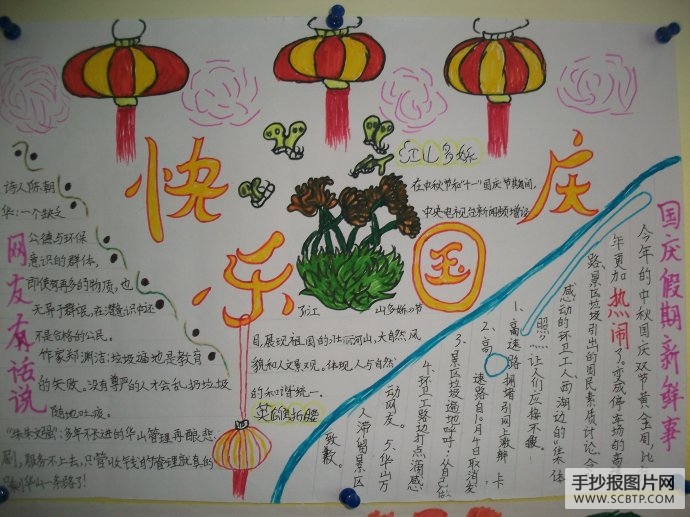 快乐国庆
江山多娇
在中秋节和“十一”国庆节期间,
中央电视台新闻频增设
了江
山多娇
节
目,展现祖国的壮丽河山,大自然风
貌和人文景观。体现人与自然
的和谐统一。
网友有话说
诗人陈朝
华:一个缺乏
公德与环保
意识的群体,
即使有再多的物质,也
无异于群氓,在潜意识中还
不是合格的公民。
作家郑渊洁:垃圾遍地是教育
的失败。没有尊严的人才会乱扔垃圾
随地吐痰。
多年不长进的华山管理再酿悲
剧,服务不上去,只管收钱的管理就真的
华山一条路了!
国庆假期新鲜事
今年的中秋国庆双节黄金周,比
年更加热闹了。变成停车场的高
路、景区垃圾引出的国民素质讨论、令
感动的环卫工人、西湖边的
照……让人们应接不暇。
1、高速路拥堵引网上数
2、高
速路自10月4日取消发
卡
3、景区垃圾遍地呼吁:从自己做
4、环卫工路边打点滴感
动网友。
5、华山万
人滞留景区
致歉。
手抄报图片网
WWW.SCBTP.COM